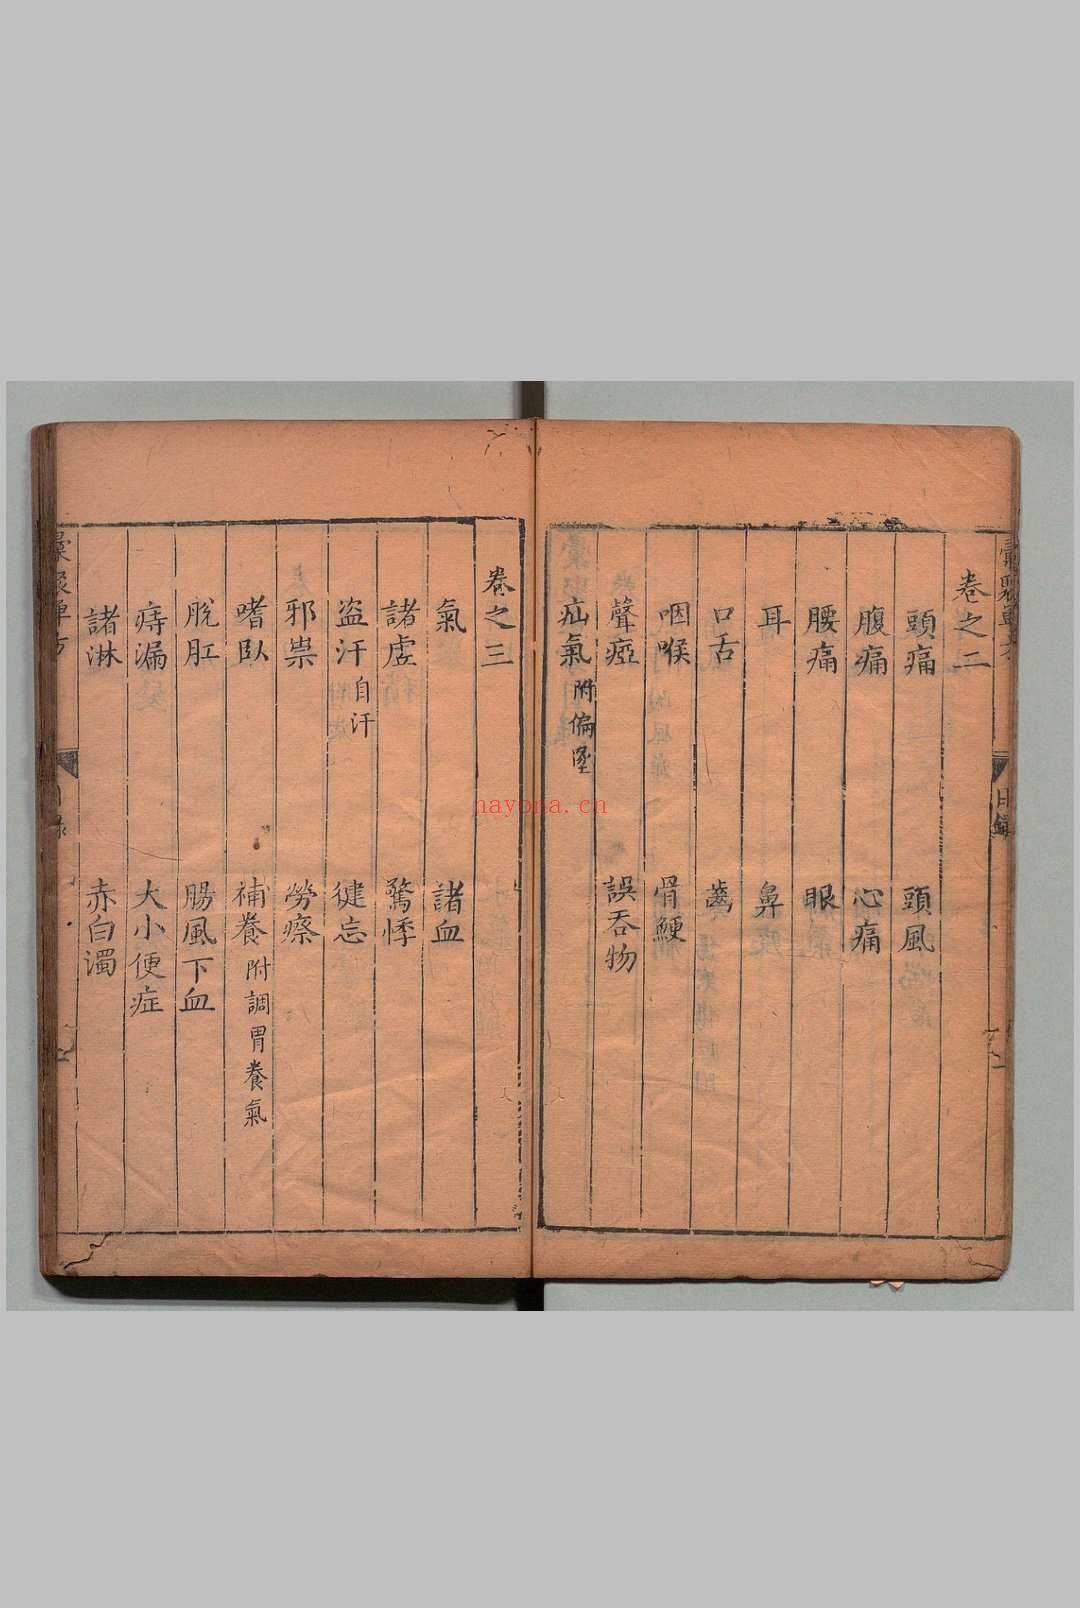 卷之二
頭痛 頭風
腹痛 心痛
腰痛 眼
耳 鼻
口舌 齒
咽喉 骨鯁
聲瘂 誤吞物
疝氣附偏墜
目錄
卷之三
氣 諸血
諸虛 驚悸
盜汗自汗 健忘
邪祟 勞瘵
嗜臥 補養附調胃養氣
脫肛 腸風下血
痔漏 大小便症
諸淋 赤白濁
nayona.cn